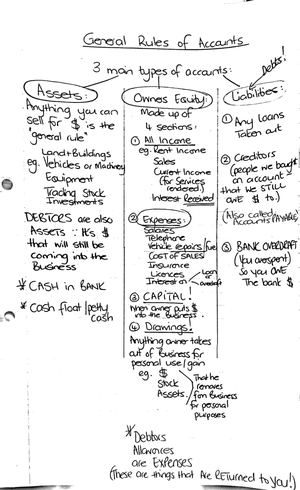 General Rules of Accounts
3 main types of accounts:
Debts!
Assets:
Anything you can
sell for $ is the
"general rule"
Land + Buildings
eg. Vehicles or Machinery
Equipment
Trading Stock
Investments
DEBTORS are also
ASSETS ∵ it's $
that will still be
coming into the
Business
* CASH in BANK
* Cash float/petty
cash
Owners Equity:
Made up of
4 sections:
① All Income
eg. Rent Income
Sales
Current Income
(for Services
rendered.)
Interest Received
② Expenses:
Salaries
Telephone
Vehicle repairs/fuel
COST OF SALES
Insurance
Licences
Interest on Loan
overdraft
③ CAPITAL!
When owner puts $
into the Business.
④ Drawings!
Anything owner takes
out of Business for
personal use/gain
eg. $
Stock
Assets.
That he
removes
from Business
for personal
purposes
* Debtors
Allowances
are EXPENSES
(These are things that are RETurned to you!)
Liabilities:
① Any Loans
Taken out
② Creditors
(people we bought
on account
that we STILL
owe $ to.)
(Also called
Accounts PAYABLE)
③ BANK OVERDRAFT
(You overspent)
so you OWE
The bank $